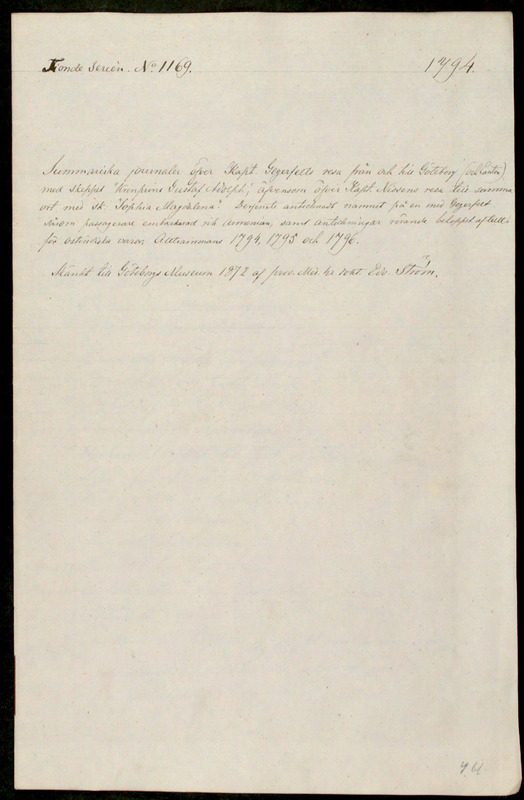 Tionde Serien. No 1169.
1794.
Summariska journaler öfver Kapt. Gegerfelts resa från och till Göteborg (och Canton)
med skeppet "Kronprins Gustaf Adolph", äfvensom öfver Kapt. Nissens resa till samma
ort med sk. "Sophia Magdalena". Derjemte antecknadt namnet på en med Gegerfelt
såsom passagerare embarkerad rik Armenian, samt anteckningar rörande beloppet af tull
för ostindiska varor; Alltsammans 1794, 1795 och 1796.
Skänkt till Göteborgs Museum 1872 af Med. Edv. Ström.